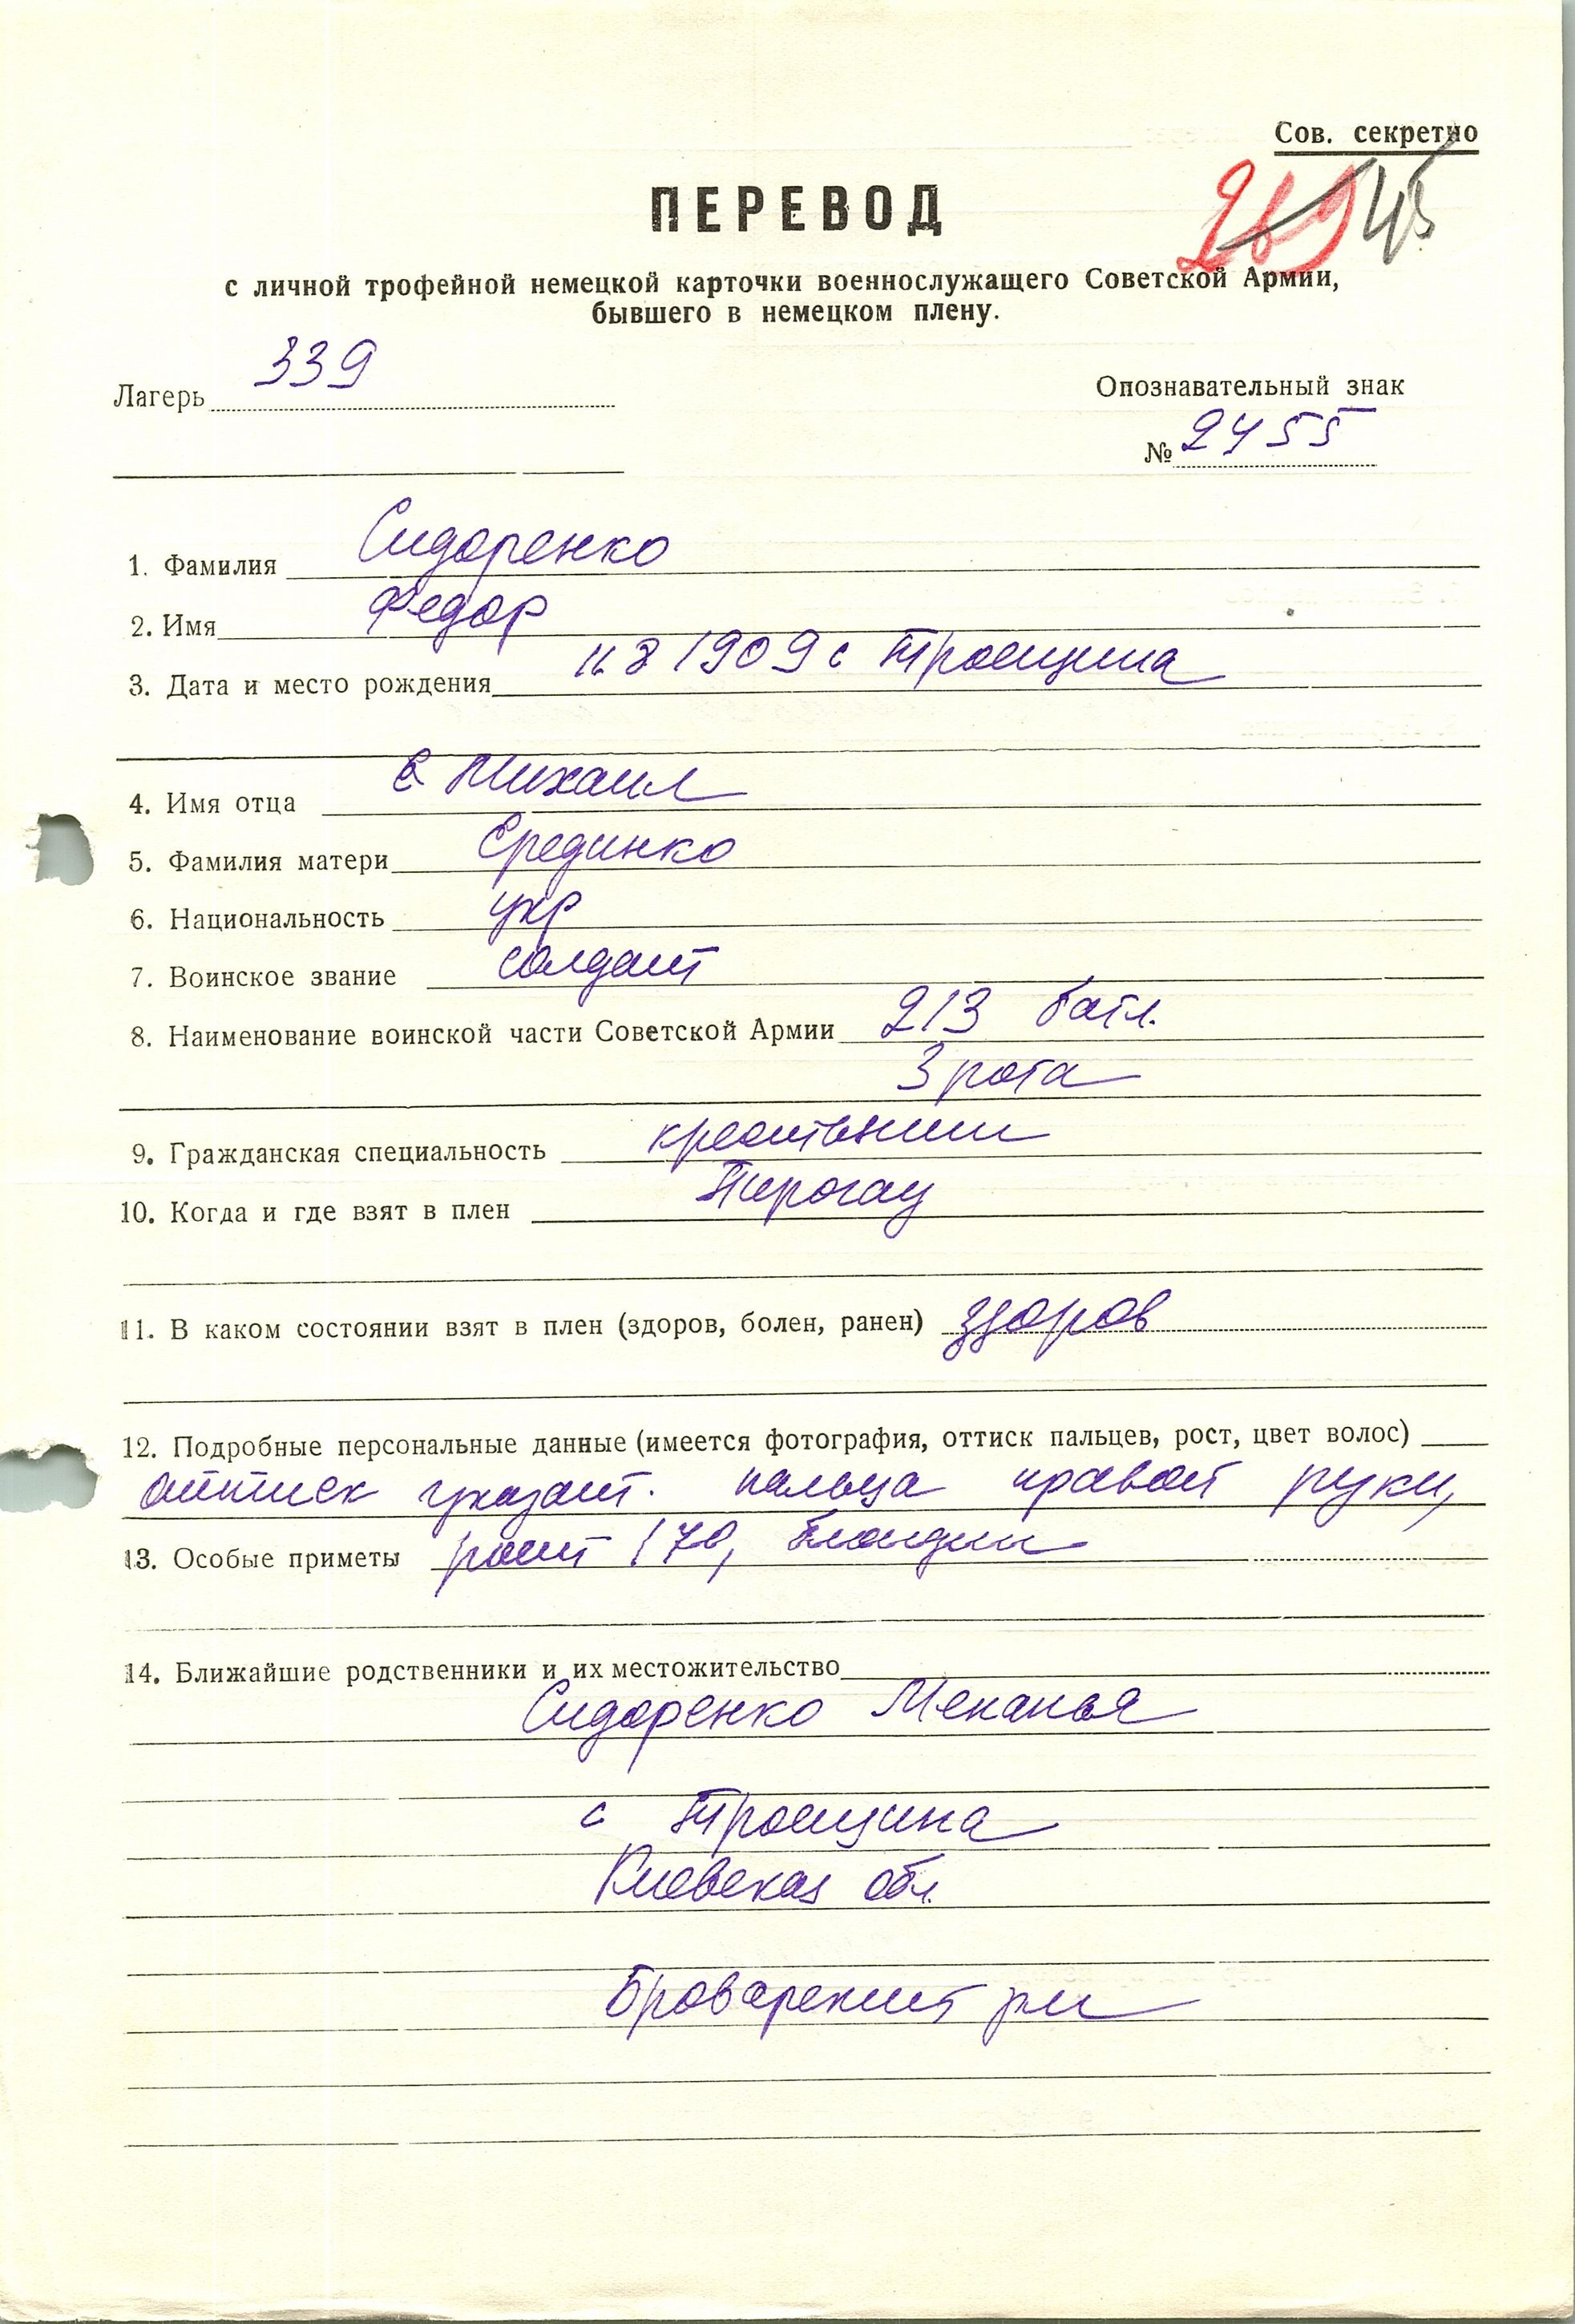 Сов. секретно
269 45
ПЕРЕВОД
с личной трофейной немецкой карточки военнослужащего Советской Армии,
бывшего в немецком плену.
Лагерь 339
Опознавательный знак
№ 2455
1. Фамилия Сидоренко
2. Имя Федор
3. Дата и место рождения 1909 с Троещина
4. Имя отца Михаил
5. Фамилия матери Ерединко
6. Национальность укр
7. Воинское звание солдат
8. Наименование воинской части Советской Армии 213 батл.
3 рота
9. Гражданская специальность крестьянин
10. Когда и где взят в плен Пирогау
11. В каком состоянии взят в плен (здоров, болен, ранен) здоров
12. Подробные персональные данные (имеется фотография, оттиск пальцев, рост, цвет волос)
оттиск указат. пальца правой руки,
13. Особые приметы рост 170, блондин
14. Ближайшие родственники и их местожительство
Сидоренко
с Троещина
Киевская обл.
Броварский рн